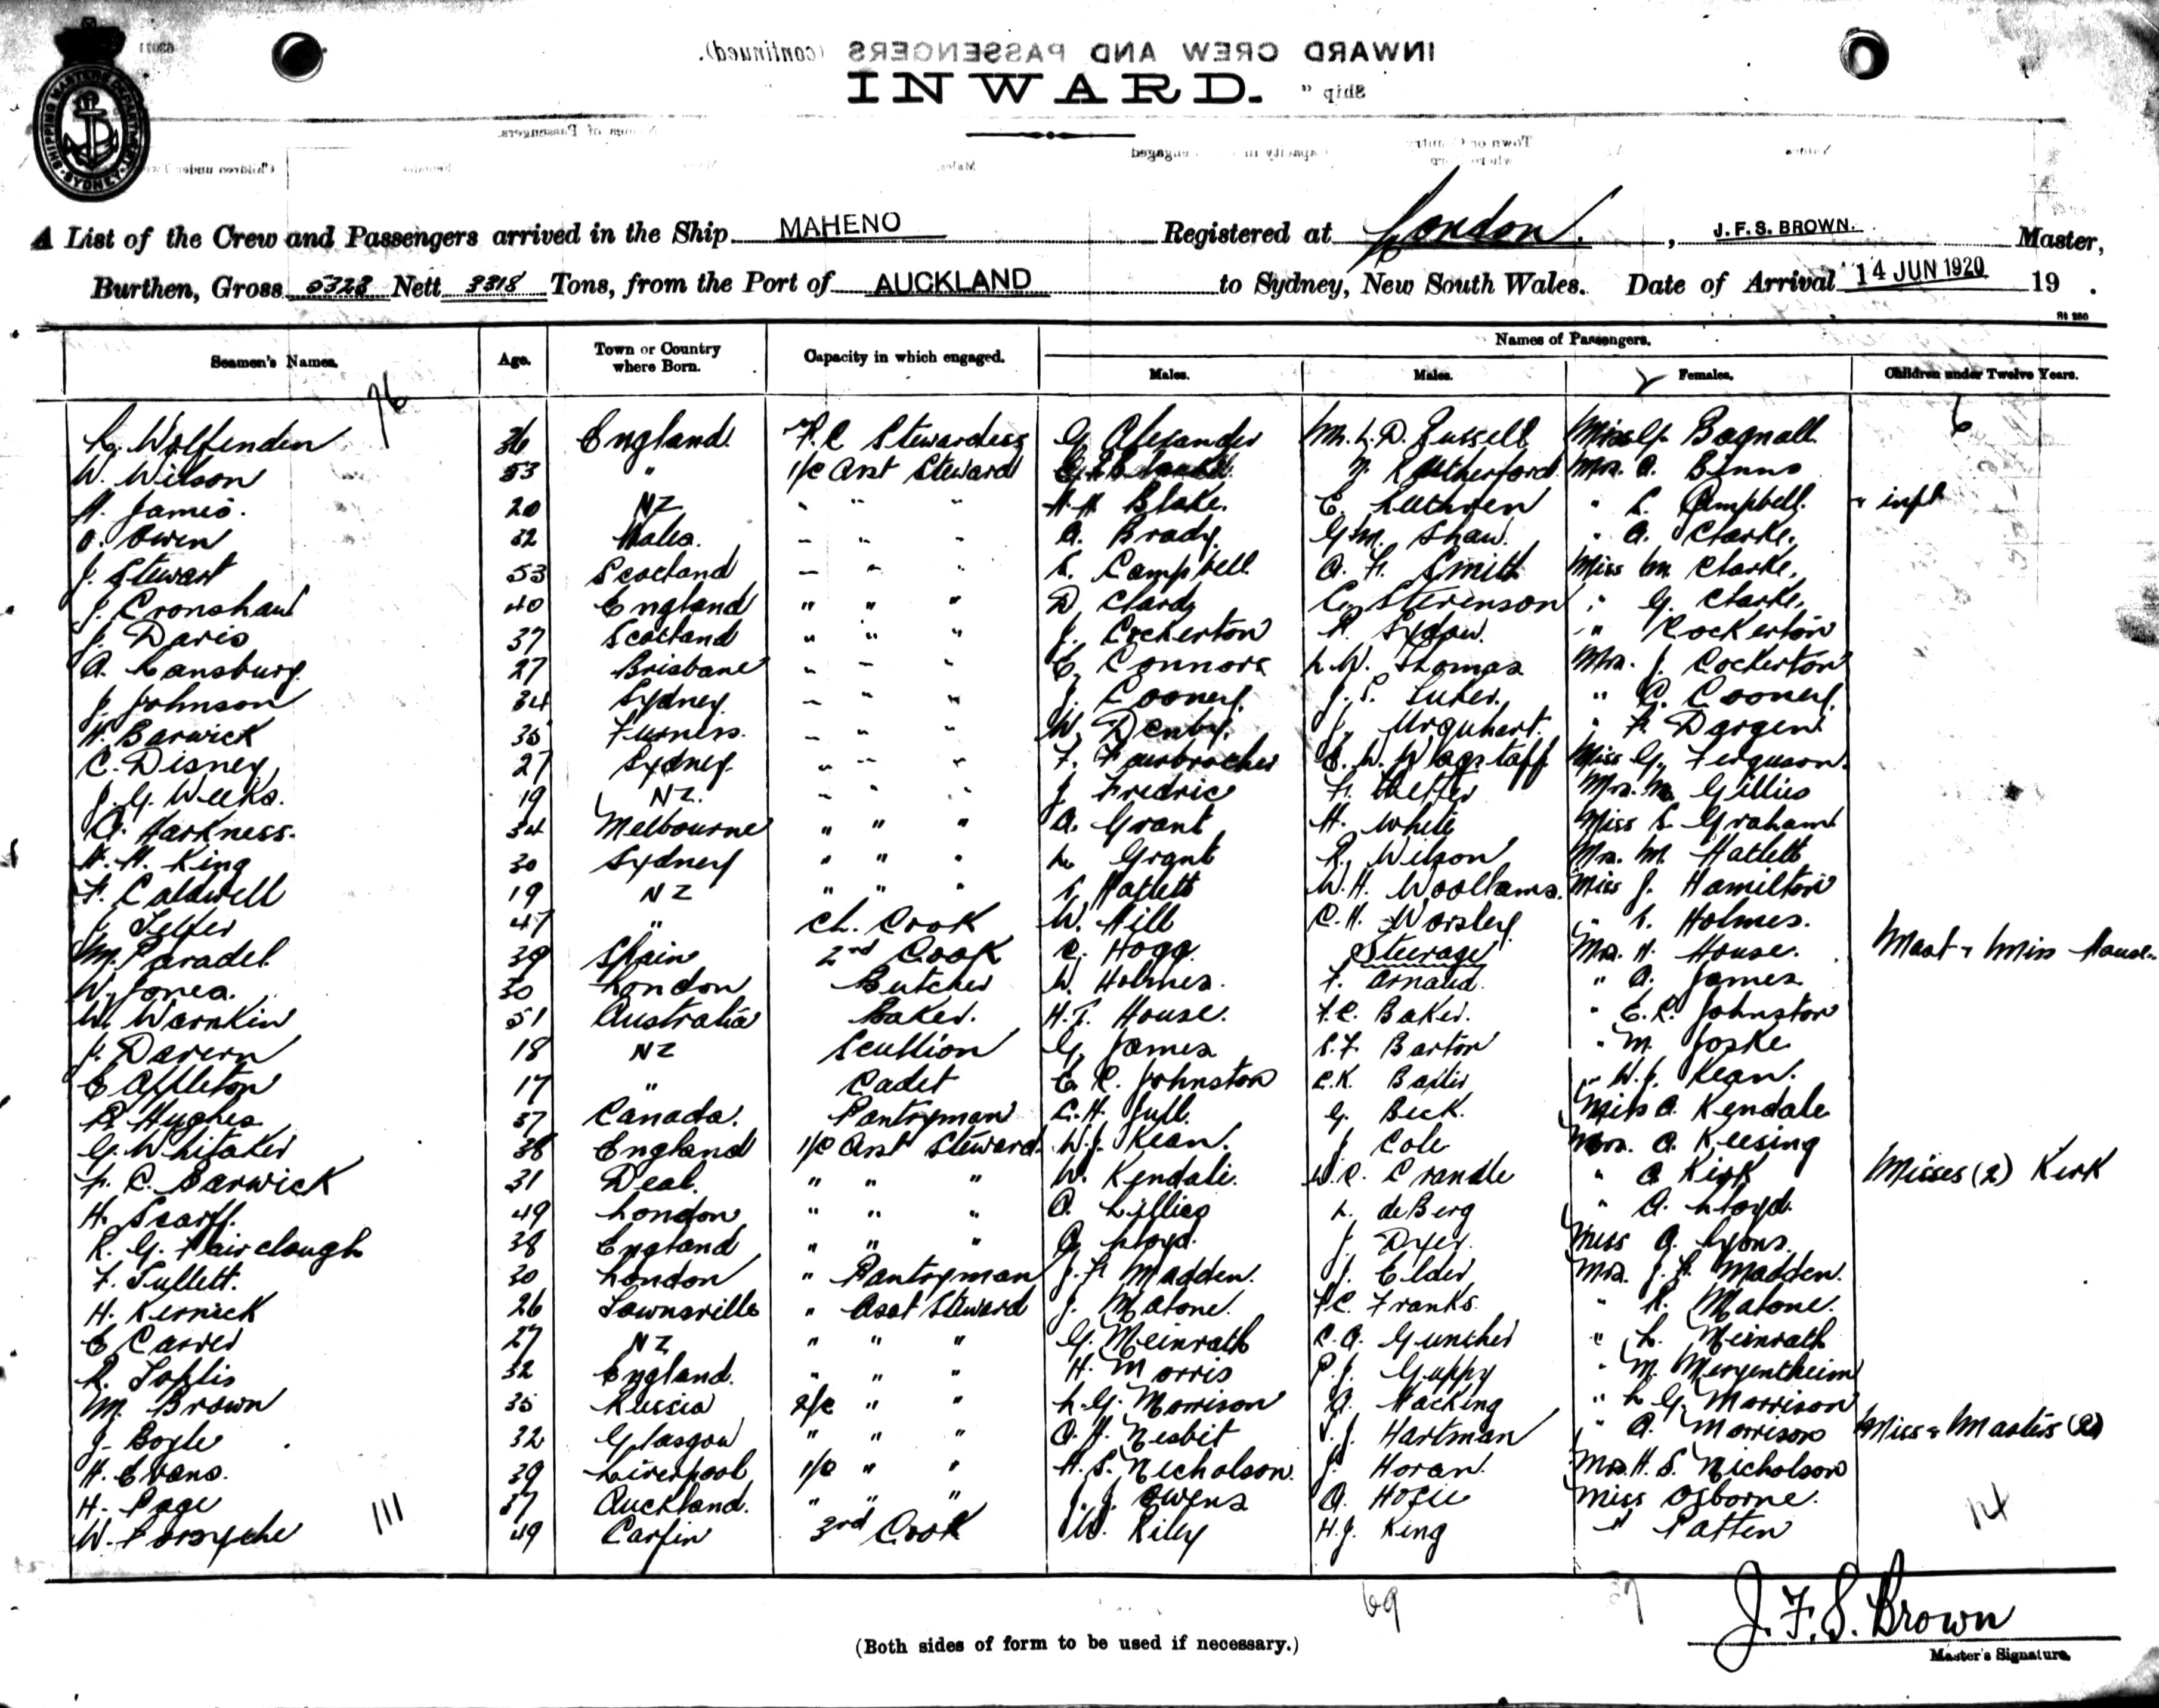 SHIPPING MASTERS DEPARTMENT SYDNEY
INWARD CREW AND PASSENGERS (continued).
INWARD.
Ship "
A List of the Crew and Passengers arrived in the Ship MAHENO Registered at London. , J. F. S. BROWN. Master,
Burthen, Gross 5323 Nett 3318 Tons, from the Port of AUCKLAND to Sydney, New South Wales. Date of Arrival 14 JUN 1920 19 .
St 280
Names of Passengers.
Seamen's Names. Age. Town or Country where Born. Capacity in which engaged. Males. Males. Females. Children under Twelve Years.
76 6
L. Wolfenden 36 England. F.C Stewardess G. Alexander Mr. L. D. Russell Miss G. Bagnall.
W. Wilson 53 " 1/C Asst Steward Rutherford Mrs. A. Binns
H. James. 20 NZ " " " H. H. Blake. E. Ruthven " L. Campbell. & inft
O. Owen 32 Wales. " " " A. Brady. G. M. Shaw. " A. Clarke.
J. Stewart 53 Scotland " " " L. Campbell. A. H. Smith Miss M. Clarke,
J. Cronshaw 40 England " " " D. Clardy C. Stevenson " G. Clarke,
J. Davis 37 Scotland " " " J. Cockerton R. Sydow. " Cockerton
A. Lansbury. 27 Brisbane " " " E. Connors L. W. Thomas Mrs. J. Cockerton
J. Johnson 34 Sydney. " " " J. Cooney. J. S. Tuker. " C. Cooney.
H. Barwick 35 Furness. " " " W. Denby. J. Urquhart. " F. Dargen.
C. Disney. 27 Sydney. " " " F. Fairbrother E. W. Wagstaff Miss G. Ferguson.
J. G. Weeks. 19 NZ. " " " J. Fredric Mrs. M. Gillies
A. Harkness. 34 Melbourne " " " A. Grant H. White Miss L. Graham
H. H. King 30 Sydney " " " L. Grant R. Wilson Mrs. M. Hatlett
F. Caldwell 19 NZ " " " S. Hatlett W. H. Woollams. Miss J. Hamilton
J. Telfer 47 " Ch. Cook W. Hill C. H. Worsley. " L. Holmes.
M. Paradel. 39 Spain 2nd Cook C. Hogg. Steerage Mrs. H. House. Mast & Miss House.
W. Jones. 30 London Butcher W. Holmes. F. Arnaud. " A. James.
W. Warnkin 51 Australia Baker. H. T. House. F. C. Baker. " E. C. Johnston
J. Davern 18 NZ Scullion G. James S. F. Barton " M. Joske
E Appleton 17 " Cadet E. C. Johnston C. K. " W. J. Kean.
R Hughes 37 Canada. Pantryman C. H. Jull. G. Beck. Miss A. Kendale
G. Whitaker 38 England 1/C Asst Steward. W. J. Kean. J. Cole Mrs. A. Keesing
F. C. Barwick 31 Deal. " " " W. Kendale. W. C. Crandle " A Kirk Misses (2) Kirk
H. Scarff. 49 London " " " A. Lillico L. deBerg " A. Lloyd.
R. G. Fairclough 38 England " " " A. Lloyd. J. Dyer. Miss A. Lyons.
F. Tullett. 30 London " Pantryman J. F. Madden. J. Elder Mrs. J. F. Madden.
H. Kernick 26 Townsville " Asst Steward J. Malone. F C. Franks. " R. Malone.
E Carver 27 NZ " " " G. Meinrath C. A. Guncher " L. Meinrath
R. Toplis 32 England. " " " H. Morris P. J. Guppy " M. Mergentheim
M. Brown 35 Russia 2/C " " L. G. Morrison A. Hacking " L G. Morrison
J. Boyle 32 Glasgow " " " A. H. Nesbit J. Hartman " A. Morrison Miss & Masters (2)
H. Evans. 39 Liverpool 1/C " " H. S. Nicholson. J. Horan. Mrs. H. S. Nicholson
H. Page 37 Auckland. " " " J. J. Owens A. Hosie Miss Osborne.
W. Forsythe 111 49 Carfin 3rd Cook W. Riley H. J. King " Patten 14
69 37
J. F. S. Brown
(Both sides of form to be used if necessary.)
Master's Signature.